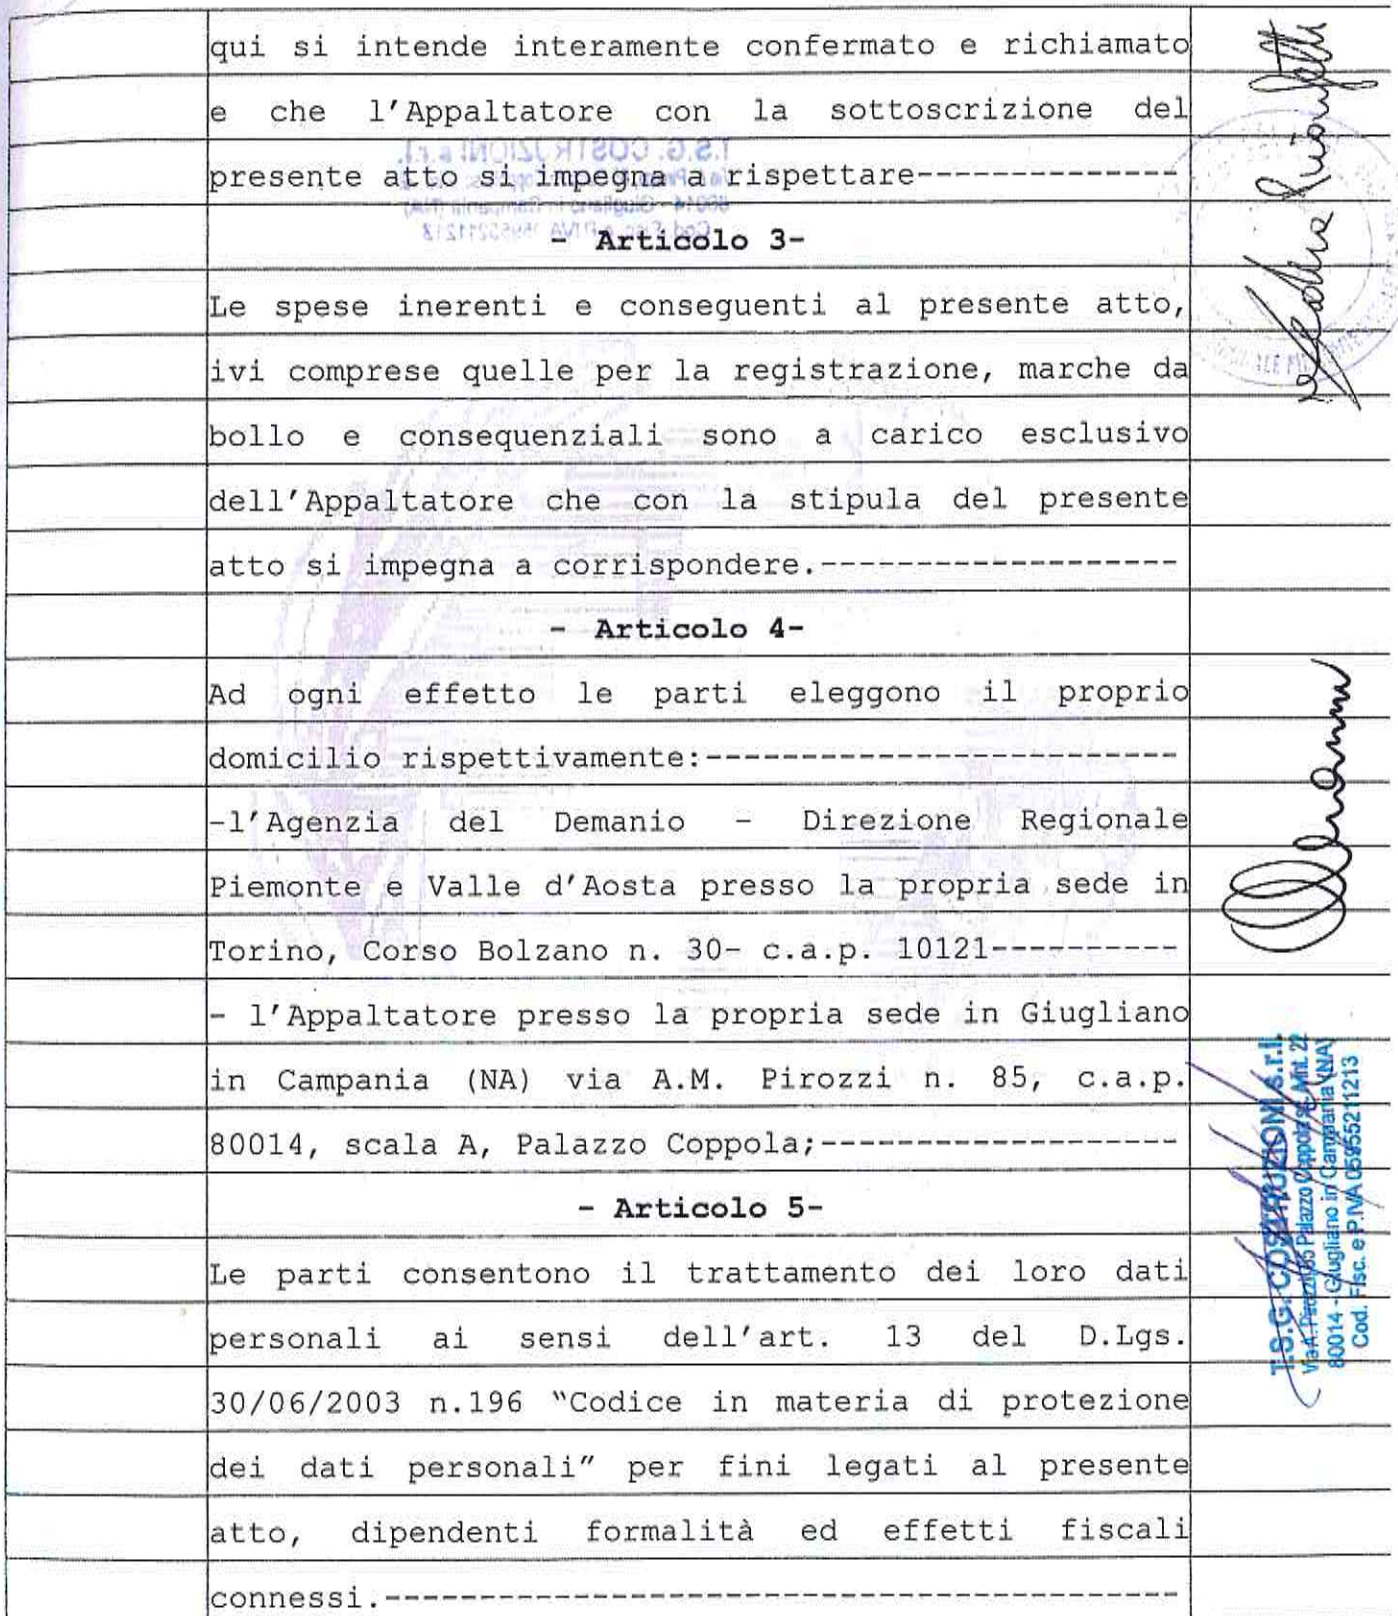 qui si intende interamente confermato e richiamato
e che l'Appaltatore con la sottoscrizione del
presente atto si impegna a rispettare--------------
- Articolo 3-
Le spese inerenti e conseguenti al presente atto,
ivi comprese quelle per la registrazione, marche da
bollo e consequenziali sono a carico esclusivo
dell'Appaltatore che con la stipula del presente
atto si impegna a corrispondere.-------------------
- Articolo 4-
Ad ogni effetto le parti eleggono il proprio
domicilio rispettivamente:-------------------------
-l'Agenzia del Demanio – Direzione Regionale
Piemonte e Valle d'Aosta presso la propria sede in
Torino, Corso Bolzano n. 30- c.a.p. 10121----------
- l'Appaltatore presso la propria sede in Giugliano
in Campania (NA) via A.M. Pirozzi n. 85, c.a.p.
80014, scala A, Palazzo Coppola;-------------------
- Articolo 5-
Le parti consentono il trattamento dei loro dati
personali ai sensi dell'art. 13 del D.Lgs.
30/06/2003 n.196 “Codice in materia di protezione
dei dati personali” per fini legati al presente
atto, dipendenti formalità ed effetti fiscali
connessi.------------------------------------------
T.S.G. COSTRUZIONI s.r.l.
Via A. Pirozzi, 85 Palazzo Coppola Int. 22
80014 - Giugliano in Campania (NA)
Cod. Fisc. e P.IVA 05955211213